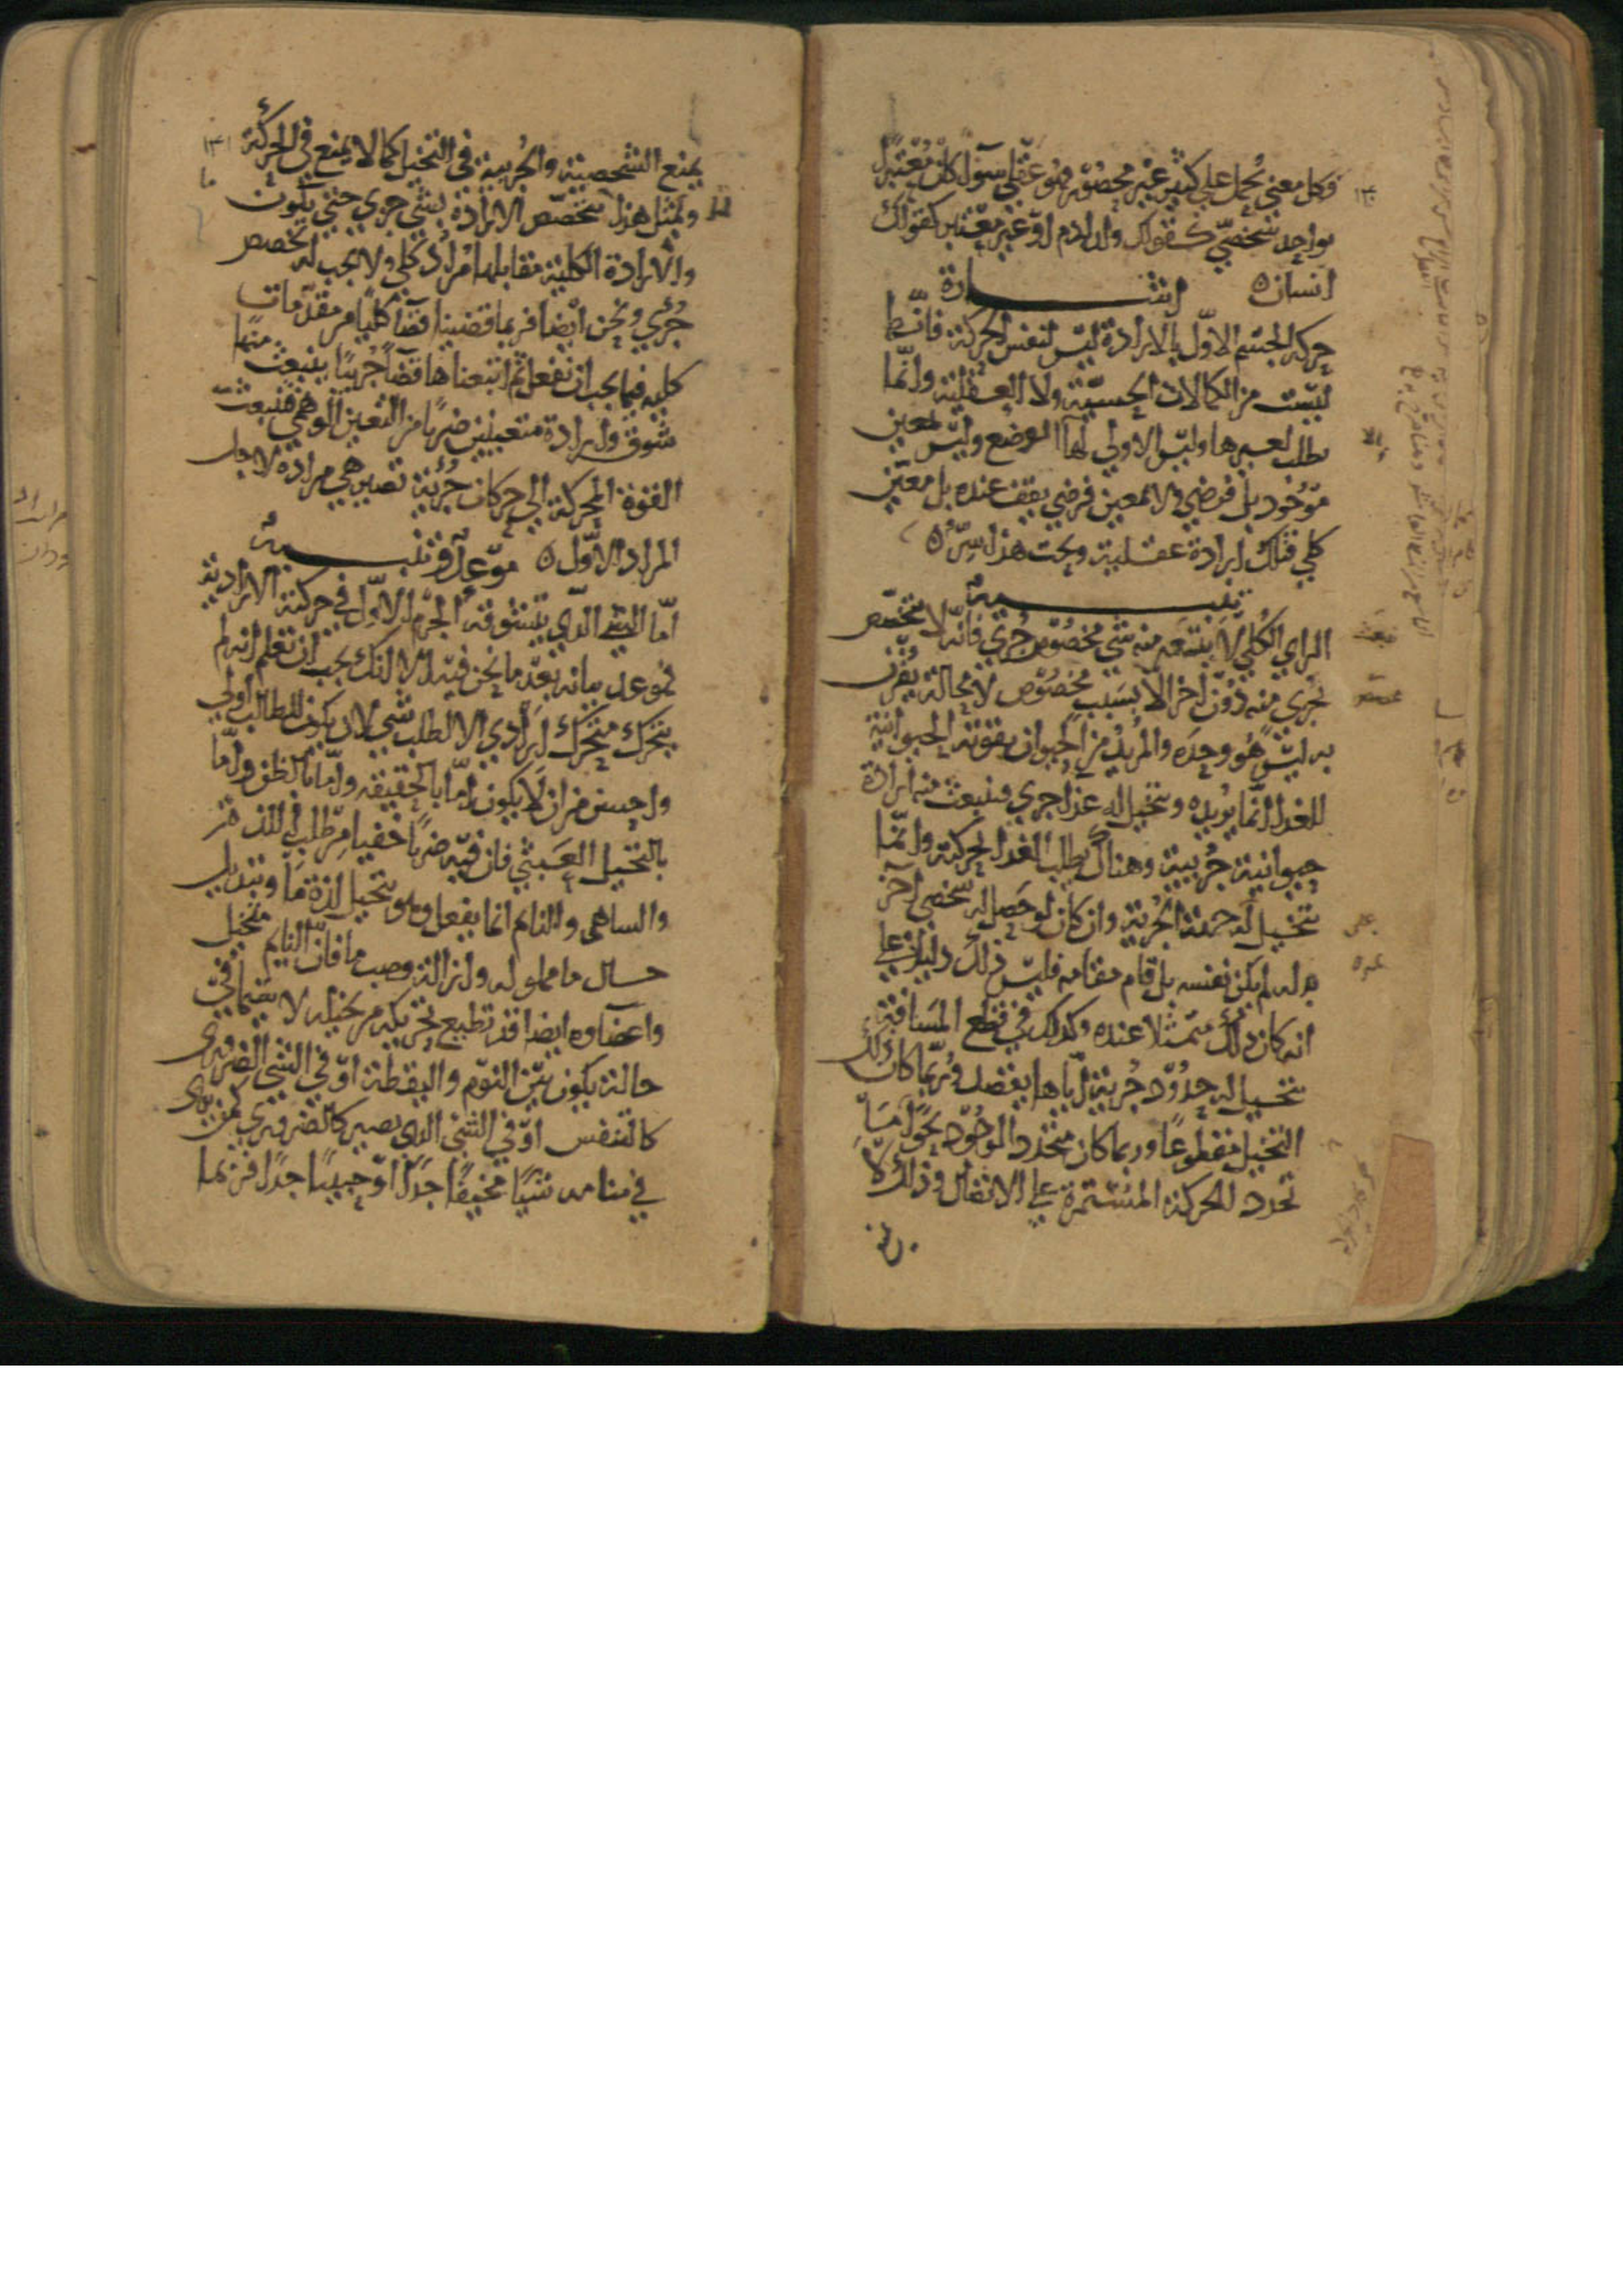 وكل معني يحمل علي كثير غير محصور فهو عقلي سوآ كان معتبرا
بواحد شخصي كقولك ولد ادم او غير معتبر كقولك
انسان ه اشــــارة
حركة الجسم الاول بالارادة ليس لنفس الحركة فانها
ليست من الكمالات الحسية ولا العقلية وانما
تطلب لغيرها وليس الاولي لها الا الوضع وليس بمعين
موجود بل فرضي ولا بمعين فرضي يقف عنده بل معين
كلي فتلك ارادة عقلية وتحت هذا سر ه
تنبيـــــه
الراي الكلي لا ينبعث منه شي مخصوص جزي فانه لا يتخصص
بجزي منه دون اخر الا بسبب مخصوص لا محالة يقترن
به ليس هو وحده والمريد من الحيوان بقوته الحيوانية
للغدا انما يريده ويتخيل له غدا جزي فينبعث منه ارادة
حيوانية جزيية وهناك يطلب الغدا بحركته وانما
يتخيل له جهته الجزية وان كان لو حصل له شخص اخر
بدله لم يكن نفسه بل قام مقامه فليس ذلك دليلا علي
انه كان ذلك متمثلا عنده وكذلك في قطع المسافة
يتخيل له حدود جزية اياها يقصد وربما كان ذلك
التخيل مقطوعا وربما كان متجدد الوجود نحوا ما
تجدد للحركة المستمرة علي الاتصال وذلك لا
يمنع
١٣٠
يمنع الشخصية والجزيية في التخيل كما لا يمنع في الحركة
ولمثل هذا يتخصص الارادة بشي جزي حتي يكون
والارادة الكلية مقابلها مراد كلي ولا يجب له تخصص
جزي ونحن ايضا فربما قضينا قضآ كليا من مقدمات
كلية فيما يجب ان نفعل ثم اتبعناها قضآ جزييا ينبعث منها
شوق وارادة متعينين ضربا من التعين الوهمي فتنبعث
القوة المحركة الي حركات جزية تصير هي مرادة لاجل
المراد الاول ه موعد وتنبيـــه
اما الشي الذي يتشوقه الجرم الاول في حركته الارادية
فموعد بيانه بعد ما نحن فيه الا انك يجب ان تعلم انه لم
يتحرك متحرك ارادي الا لطلب شي لان يكون للطالب اولي
واحسن من ان لا يكون اما بالحقيقة واما بالظن واما
بالتخيل العبثي فان فيه ضربا خفيا من طلب اللذة
والساهي والنايم انما يفعل وهو يتخيل لذة ما او تبديل
حال ما مملوله او ازالة وصب ما فان النايم متخيل
واعضاوه ايضا قد تطيع تحريكه من تخيله لا سيما في
حالة يكون بين النوم واليقظة او في الشي الضروري
كالتنفس او في الشي الذي يصير كالضروري كمن يري
في منامه شيا مخيفا جدا او حبيبا جدا فربما
١٣١